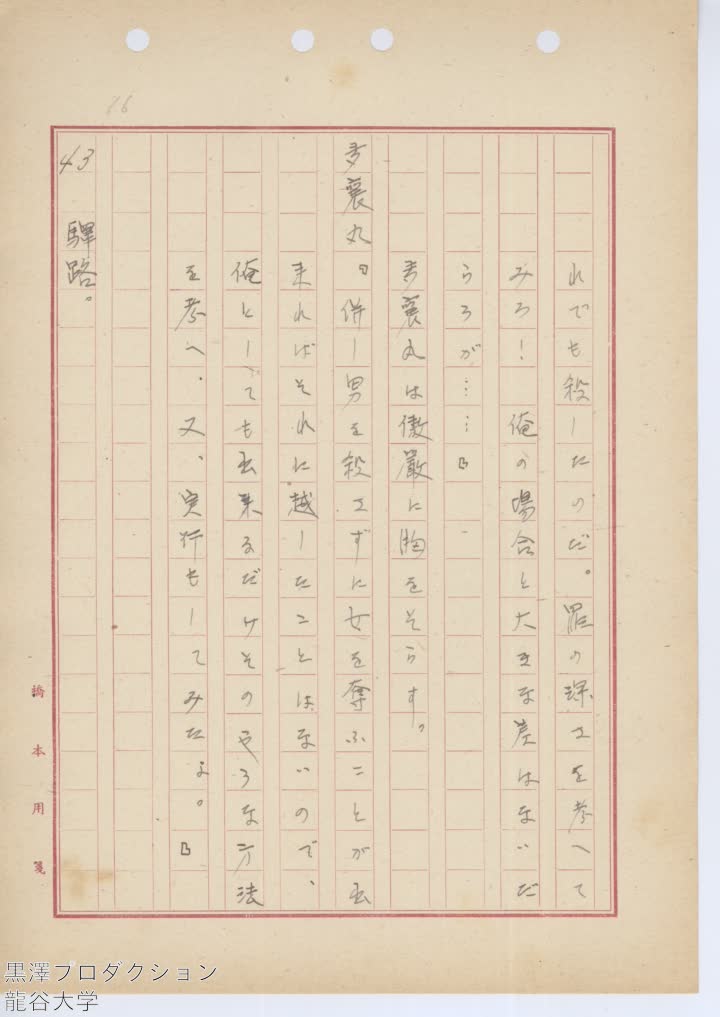 86
れでも殺したのだ。罪の深さを考へて
みろ！　俯の場合と大きな差はないだ
らうが……」
多襄丸は傲厳に胸をそらす。
多襄丸。「併し男を殺さずに女を奪ふことが出
来ればそれに越したことはないので、
俺としても出来るだけそのやうな方法
を考へ、又、実行もしてみたよ。」
43　驛路。
橋本用箋
黒澤プロダクション
龍谷大学